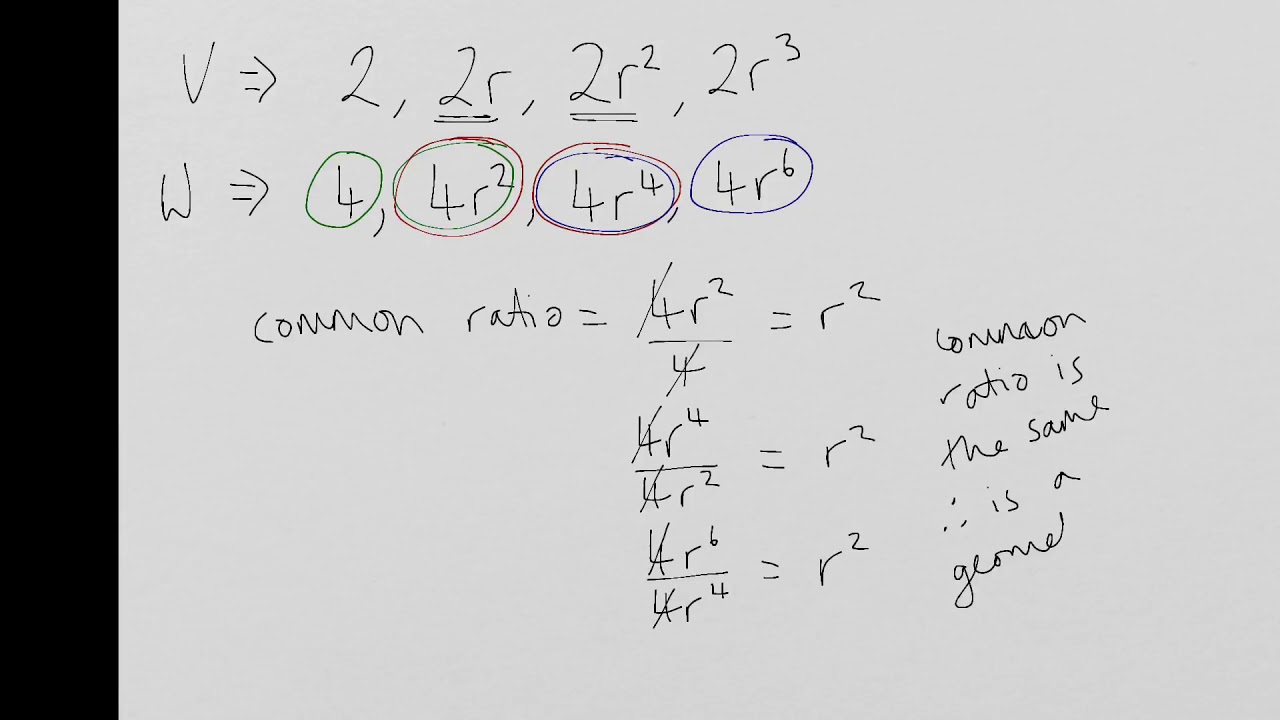 V ⇒ 2, 2r, 2r², 2r³
W ⇒ 4, 4r², 4r⁴, 4r⁶
common ratio = 4r²/4 = r²
4r⁴/4r² = r²
4r⁶/4r⁴ = r²
common
ratio is
the same
∴ is a
geomet